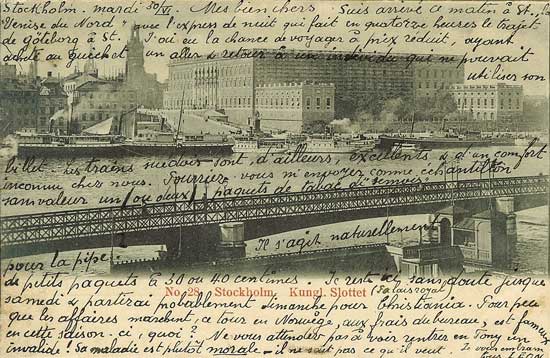 Stockholm. mardi 30/VI. Mes bien chers Suis arrivé ce matin à St., "Venise du Nord"
que l'express de nuit qui fait en quatorze heures le trajet
de Göteborg à St. J'ai eu la chance de voyager à prix réduit, ayant
au guichet un aller & retour à un individu qui ne pouvait
utiliser son
billet. Les trains suédois sont, d'ailleurs, excellents & d'un confort
inconnu chez nous. Pourriez vous m'envoyer comme échantillon
sans valeur un ou deux paquets de tabac de
pour la pipe. Il s'agit naturellement
de petits paquets à 30 ou 40 centimes. Je reste ici sans doute jusque
No. 28. Stockholm. Kungl. Slottet
samedi & partirai probablement dimanche pour Christiania. Pour peu
que les affaires marchent, ce tour en Norwège, aux frais du bureau, est fameux
en cette saison-ci, quoi? Ne vous attendez pas à voir rentrer en Tony un
invalide! Sa maladie est plutôt morale – il ne sait pas ce qu'il veut.